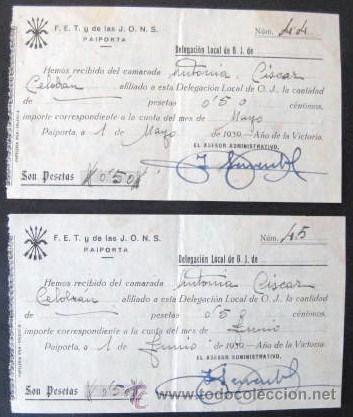 F. E. T. y de las J. O. N. S.
PAIPORTA
Núm. 44
Delegación Local de O. J. de
Hemos recibido del camarada Antonia Ciscar
afiliado a esta Delegación Local de O. J., la cantidad
de pesetas 0'50 céntimos,
importe correspondiente a la cuota del mes de Mayo
Paiporta, a 1 de Mayo de 1939.—Año de la Victoria.
EL ASESOR ADMINISTRATIVO,
Son Pesetas 0'50
F. E. T. y de las J. O. N. S.
PAIPORTA
Núm. 45
Delegación Local de O. J. de
Hemos recibido del camarada Antonia Ciscar
afiliado a esta Delegación Local de O. J., la cantidad
de pesetas 0'50 céntimos,
importe correspondiente a la cuota del mes de Junio
Paiporta, a 1 de Junio de 1939.—Año de la Victoria.
EL ASESOR ADMINISTRATIVO,
Son Pesetas 0'50
todocoleccion.net